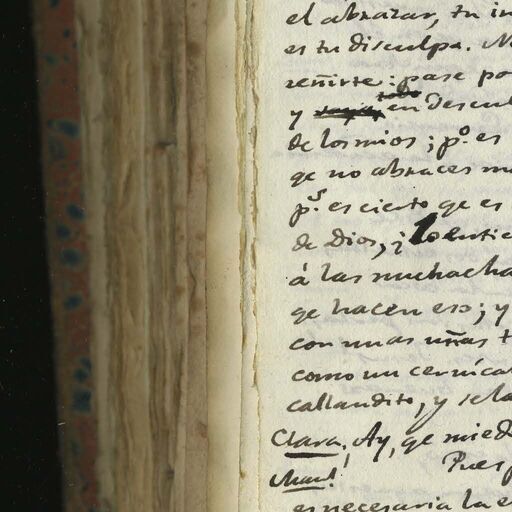 el abrazar, tu in
es tu disculpa. No
reñirte: pase po
y todo en descul
de los mios; p.º es
qe no abraces m
p.s es cierto qe es
de Dios, ¡
á las muchacha
qe hacen eso; y
con unas uñas t
como un cernícal
callandito, y se la
Clara. Ay, qe mied
Pues
es necesaria la e